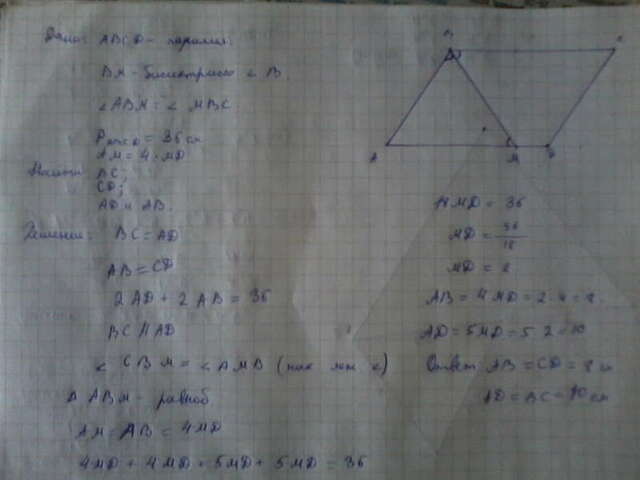 Дано: ABCD - паралл.
BM - биссектриса < B
< ABM = < MBC
P ABCD = 36 см
AM = 4 · MD
Найти BC;
CD;
AD и AB.
Решение: BC = AD
AB = CD
2 AD + 2 AB = 36
BC || AD
< CBM = < AMB (как леж <)
Δ ABM - равноб
AM = AB = 4MD
4MD + 4MD + 5MD + 5MD = 36
B
C
A
M
D
18 MD = 36
MD = 36/18
MD = 2
AB = 4MD = 2 · 4 = 8
AD = 5MD = 5 · 2 = 10
Ответ AB = CD = 8 см
AD = BC = 10 см